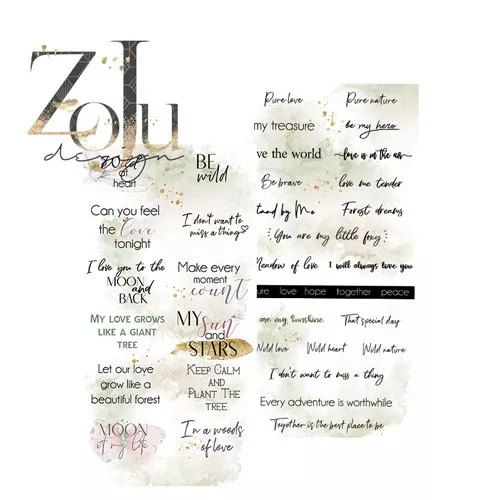 ZoJu
design
wild
at
heart
BE
wild
Can you feel
the love
tonight
I don't want to
miss a thing
I love you to the
MOON
and
BACK
Make every
moment
count
MY LOVE GROWS
LIKE A GIANT
TREE
MY
sun
and
STARS
Let our love
grow like a
beautiful forest
KEEP CALM
AND
PLANT THE
TREE
MOON
of my life
In a woods
of love
Pure love
Pure nature
my treasure
be my hero
ve the world
love is in the air
Be brave
love me tender
tand by Me
Forest dreams
You are my little foxy
Meadow of love
I will always love you
ure love hope together peace
are my sunshine
That special day
Wild love
Wild heart
Wild nature
I don't want to miss a thing
Every adventure is worthwhile
Together is the best place to be